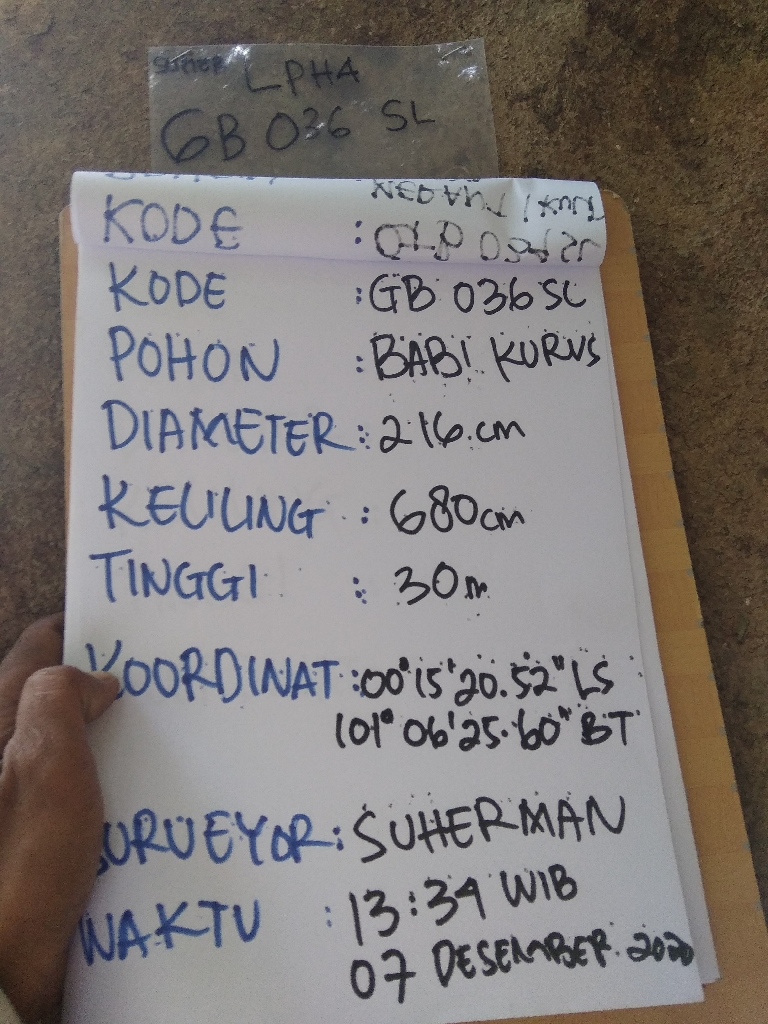 LPHA
GB 036 SL
KODE :
KODE : GB 036 SL
POHON : BABI KURUS
DIAMETER : 216.cm
KELILING : 680cm
TINGGI : 30m
KOORDINAT : 00°15'20.52" LS
101° 06'25.60" BT
SURVEYOR : SUHERMAN
WAKTU : 13:34 WIB
07 DESEMBER 2020